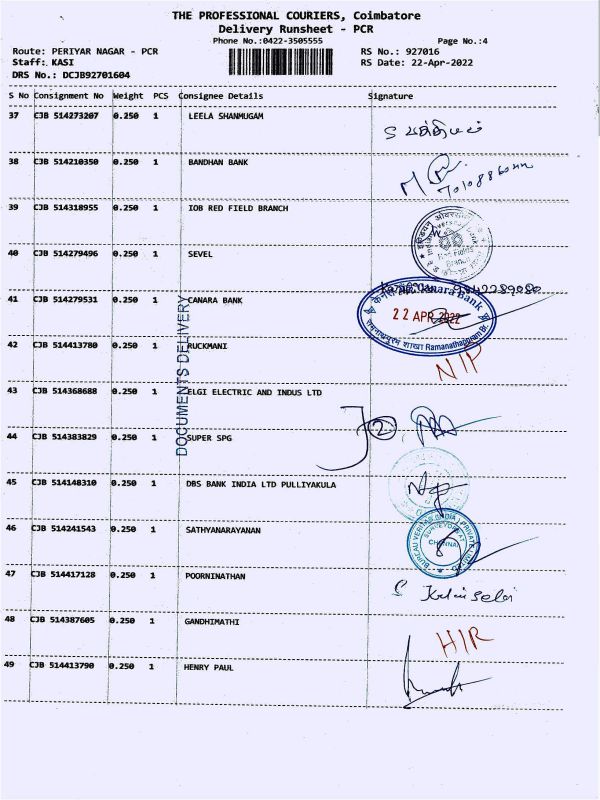 THE PROFESSIONAL COURIERS, Coimbatore
Delivery Runsheet - PCR
Phone No.:0422-3505555
Page No.:4
Route: PERIYAR NAGAR - PCR
RS No.: 927016
Staff: KASI
RS Date: 22-Apr-2022
DRS No.: DCJB92701604
S No Consignment No Weight PCS Consignee Details Signature
37 CJB 514273207 0.250 1 LEELA SHANMUGAM
38 CJB 514210350 0.250 1 BANDHAN BANK
39 CJB 514318955 0.250 1 IOB RED FIELD BRANCH
40 CJB 514279496 0.250 1 SEVEL
41 CJB 514279531 0.250 1 CANARA BANK
Canara Bank
22 APR 2022
Ramanathapuram Br.
42 CJB 514413780 0.250 1 RUCKMANI
NIP
DOCUMENTS DELIVERY
43 CJB 514368688 0.250 1 ELGI ELECTRIC AND INDUS LTD
2
44 CJB 514383829 0.250 1 SUPER SPG
45 CJB 514148310 0.250 1 DBS BANK INDIA LTD PULLIYAKULA
46 CJB 514241543 0.250 1 SATHYANARAYANAN
BUREAU VERITAS (INDIA) PRIVATE LIMITED
SURVEYOR AT
CHENNAI
47 CJB 514417128 0.250 1 POORNINATHAN
48 CJB 514387605 0.250 1 GANDHIMATHI
HIR
49 CJB 514413790 0.250 1 HENRY PAUL